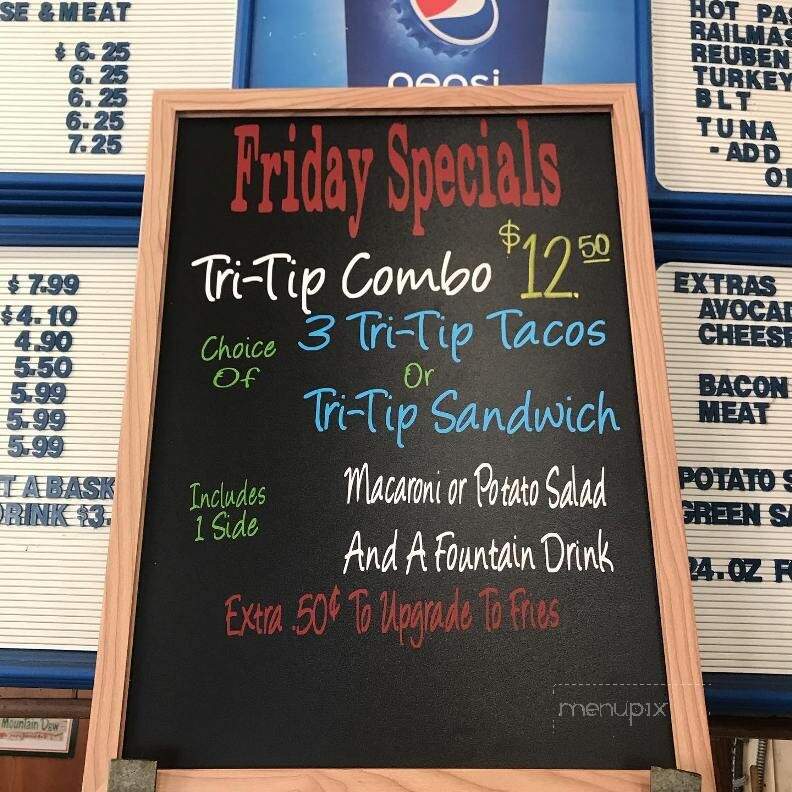 SE & MEAT
$ 6.25
6.25
6.25
6.25
7.25
$ 7.99
$4.10
4.90
5.50
5.99
5.99
5.99
T A BASK
RINK $3.
Mountain Dew
pepsi
Friday Specials
Tri-Tip Combo $12.50
Choice Of
3 Tri-Tip Tacos
Or
Tri-Tip Sandwich
Includes
1 Side
Macaroni or Potato Salad
And A Fountain Drink
Extra .50¢ To Upgrade To Fries
menupix
HOT PAS
RAILMAS
REUBEN
TURKEY
BLT
TUNA
- ADD
EXTRAS
AVOCAD
CHEESE
BACON
MEAT
POTATO S
GREEN SA
24.OZ F